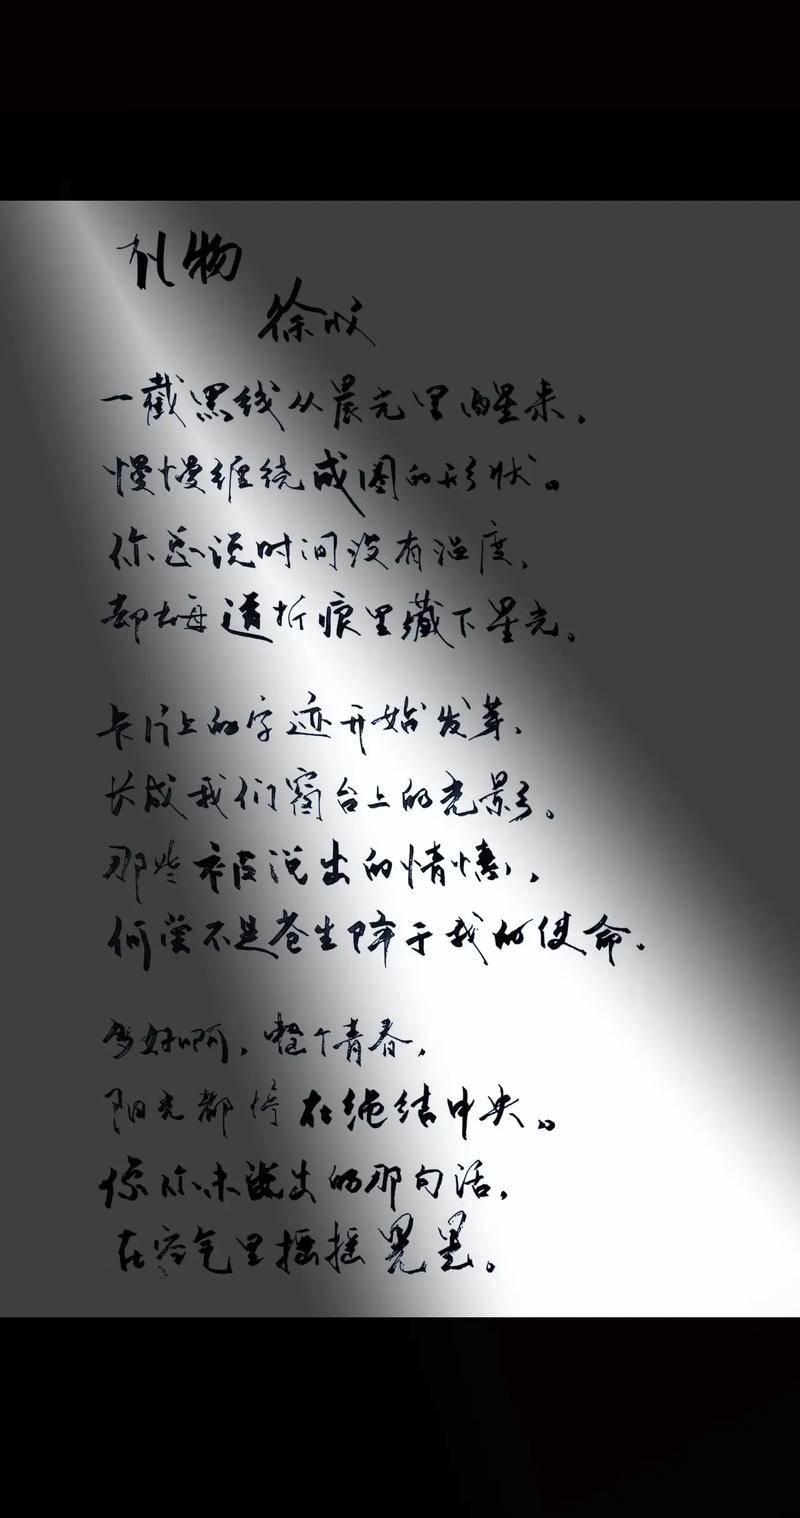 礼物
徐
一截黑线从晨光里醒来,
慢慢缠绕成圈的形状。
你总说时间没有温度,
却在每道折痕里藏下星光。
卡片上的字迹开始发芽,
长成我们窗台上的光影。
那些被说出的情愫,
何尝不是苍生降于我的使命.
多好啊,整个青春,
阳光都停在绳结中央。
像你未说出的那句话,
在空气里摇摇晃晃。